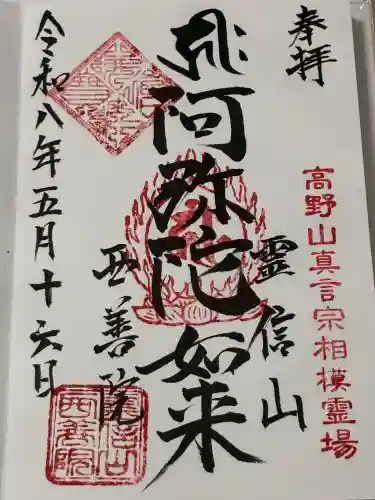 奉拝
高野山真言宗相模霊場
霊信山
阿弥陀如来
西善院
令和八年五月十六日
霊信山
西善院